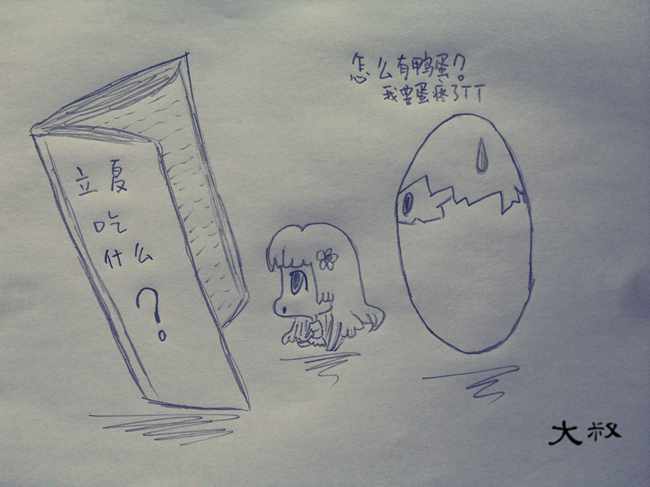 怎么有鸭蛋？
我要蛋疼了TT
立夏
吃
什么
？
大叔